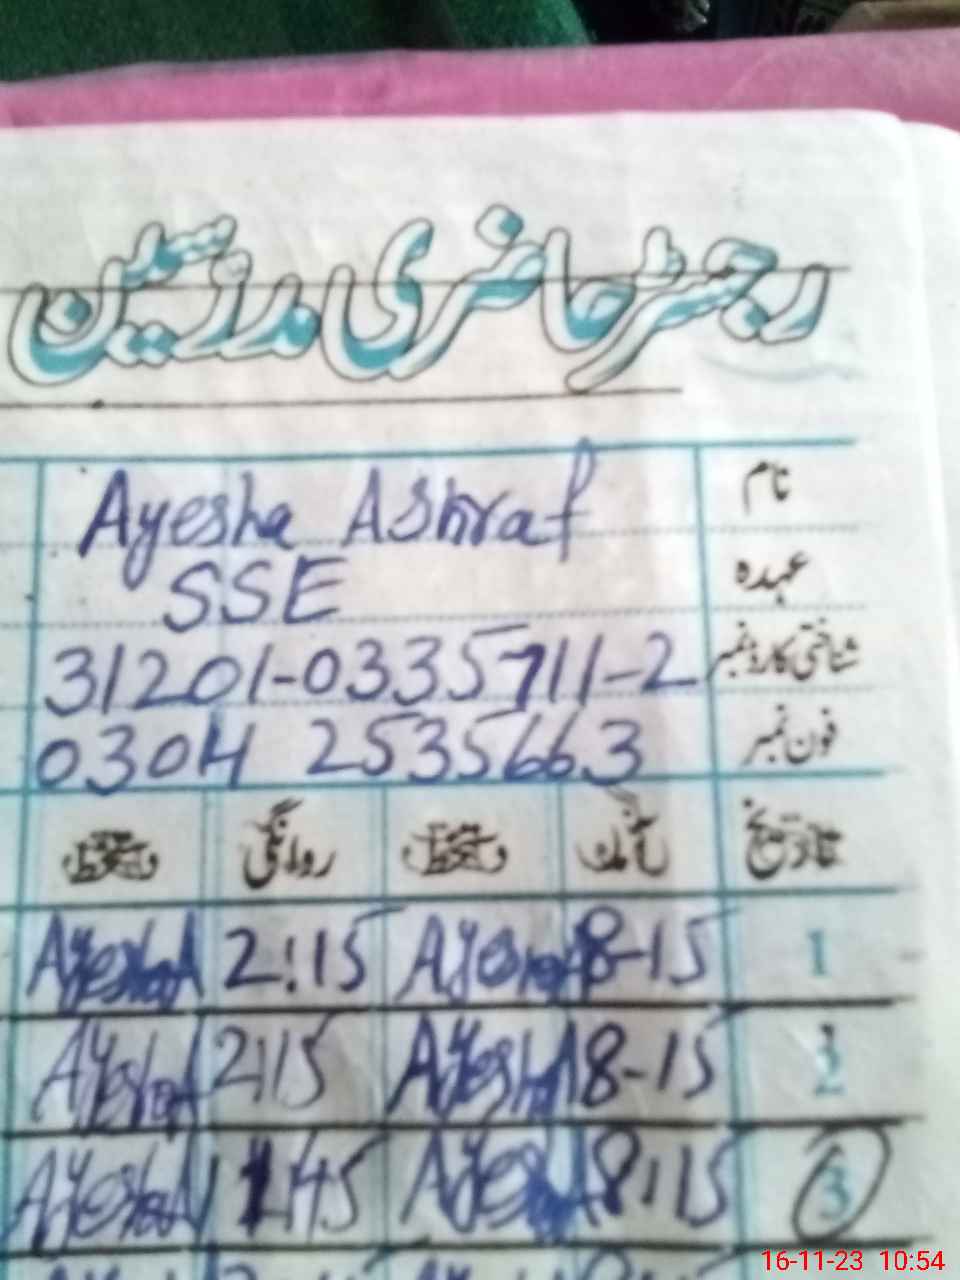 رجسٹر حاضری مدرسین
نام Ayesha Ashraf
عہدہ SSE
شناختی کارڈ نمبر 31201-0335711-2
فون نمبر 0304 2535663
تاریخ آمد دستخط روانگی دستخط
1 8-15 Ayesha A 2:15 Ayesha A
2 8-15 Ayesha A 2:15 Ayesha A
3 8:15 Ayesha A 1:45 Ayesha A
16-11-23 10:54